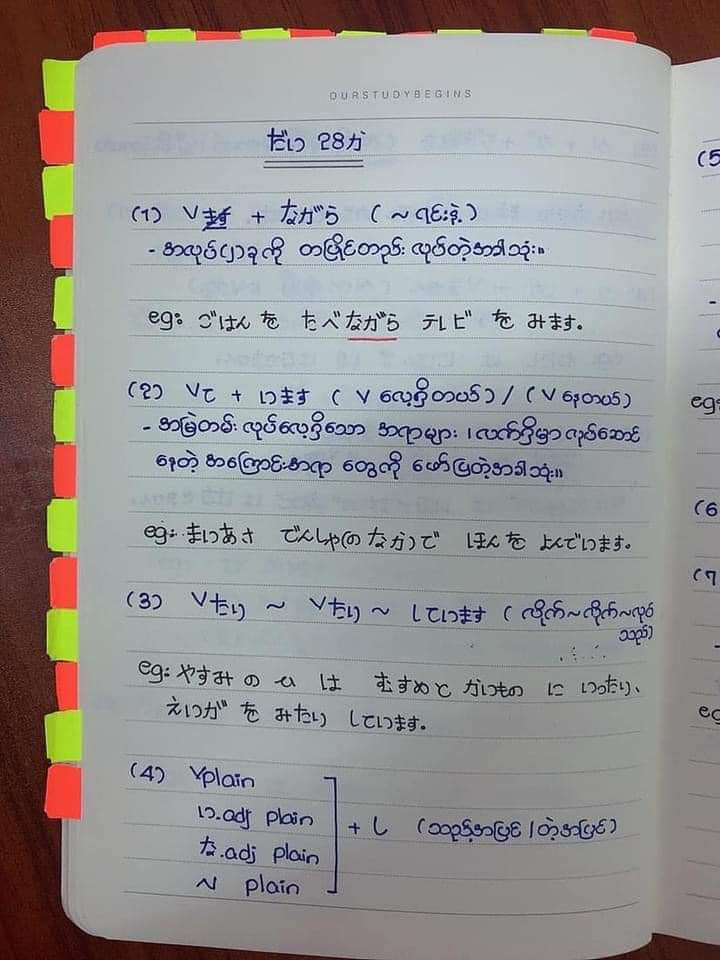 OURSTUDYBEGINS
だい 28か
(1) Vます + ながら (~ ရင်းနဲ့)
- အလုပ်(၂)ခုကို တပြိုင်တည်း လုပ်တဲ့အခါသုံး။
eg: ごはん を たべながら テレビ を みます。
(2) Vて + います (V လေ့ရှိတယ်) / (V နေတယ်)
- အမြဲတမ်း လုပ်လေ့ရှိသော အရာများ ၊ လက်ရှိမှာ လုပ်ဆောင်
နေတဲ့ အကြောင်းအရာ တွေကို ဖော်ပြတဲ့အခါသုံး။
eg: まいあさ でんしゃ(の なか)で ほん を よんでいます。
(3) Vたり ~ Vたり ~ しています (လိုက်~လိုက်~လုပ်
သည်)
eg: やすみ の ひ は むすめと かいもの に いったり、
えいが を みたり しています。
(4) Vplain
い.adj plain
な.adj plain
N plain
+ し (သည့်အပြင် / တဲ့အပြင်)
(5
-
eg:
(6
(7
-
eg